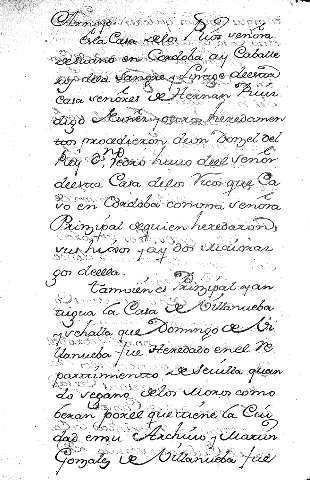 Arroyo
Esta Casa de los Rios señora
de Riano en Cordoba ay Caballe
ros de la Sangre y Linage de esta
Casa señores de Hernan Nuñ
y otros heredamen
tos procedieron de un Donzel del
Rey Dn Pedro huuo de el señor
de esta Casa de los Rios que Ca
so en Cordoba con una señora
Principal de quien heredaron
sus hijos y ay dos Maioraz
gos de ella.
tambien es Principal y an
tigua la Casa de Villanueba
y se halla que Domingo de Vi
llanueba fue Heredado en el Re
partimiento de Seuilla quan
do se gano de los Moros como
beran por el que tiene la Ciu
dad en su Archiuo y Martin
Gonzalez de Villanueba fue